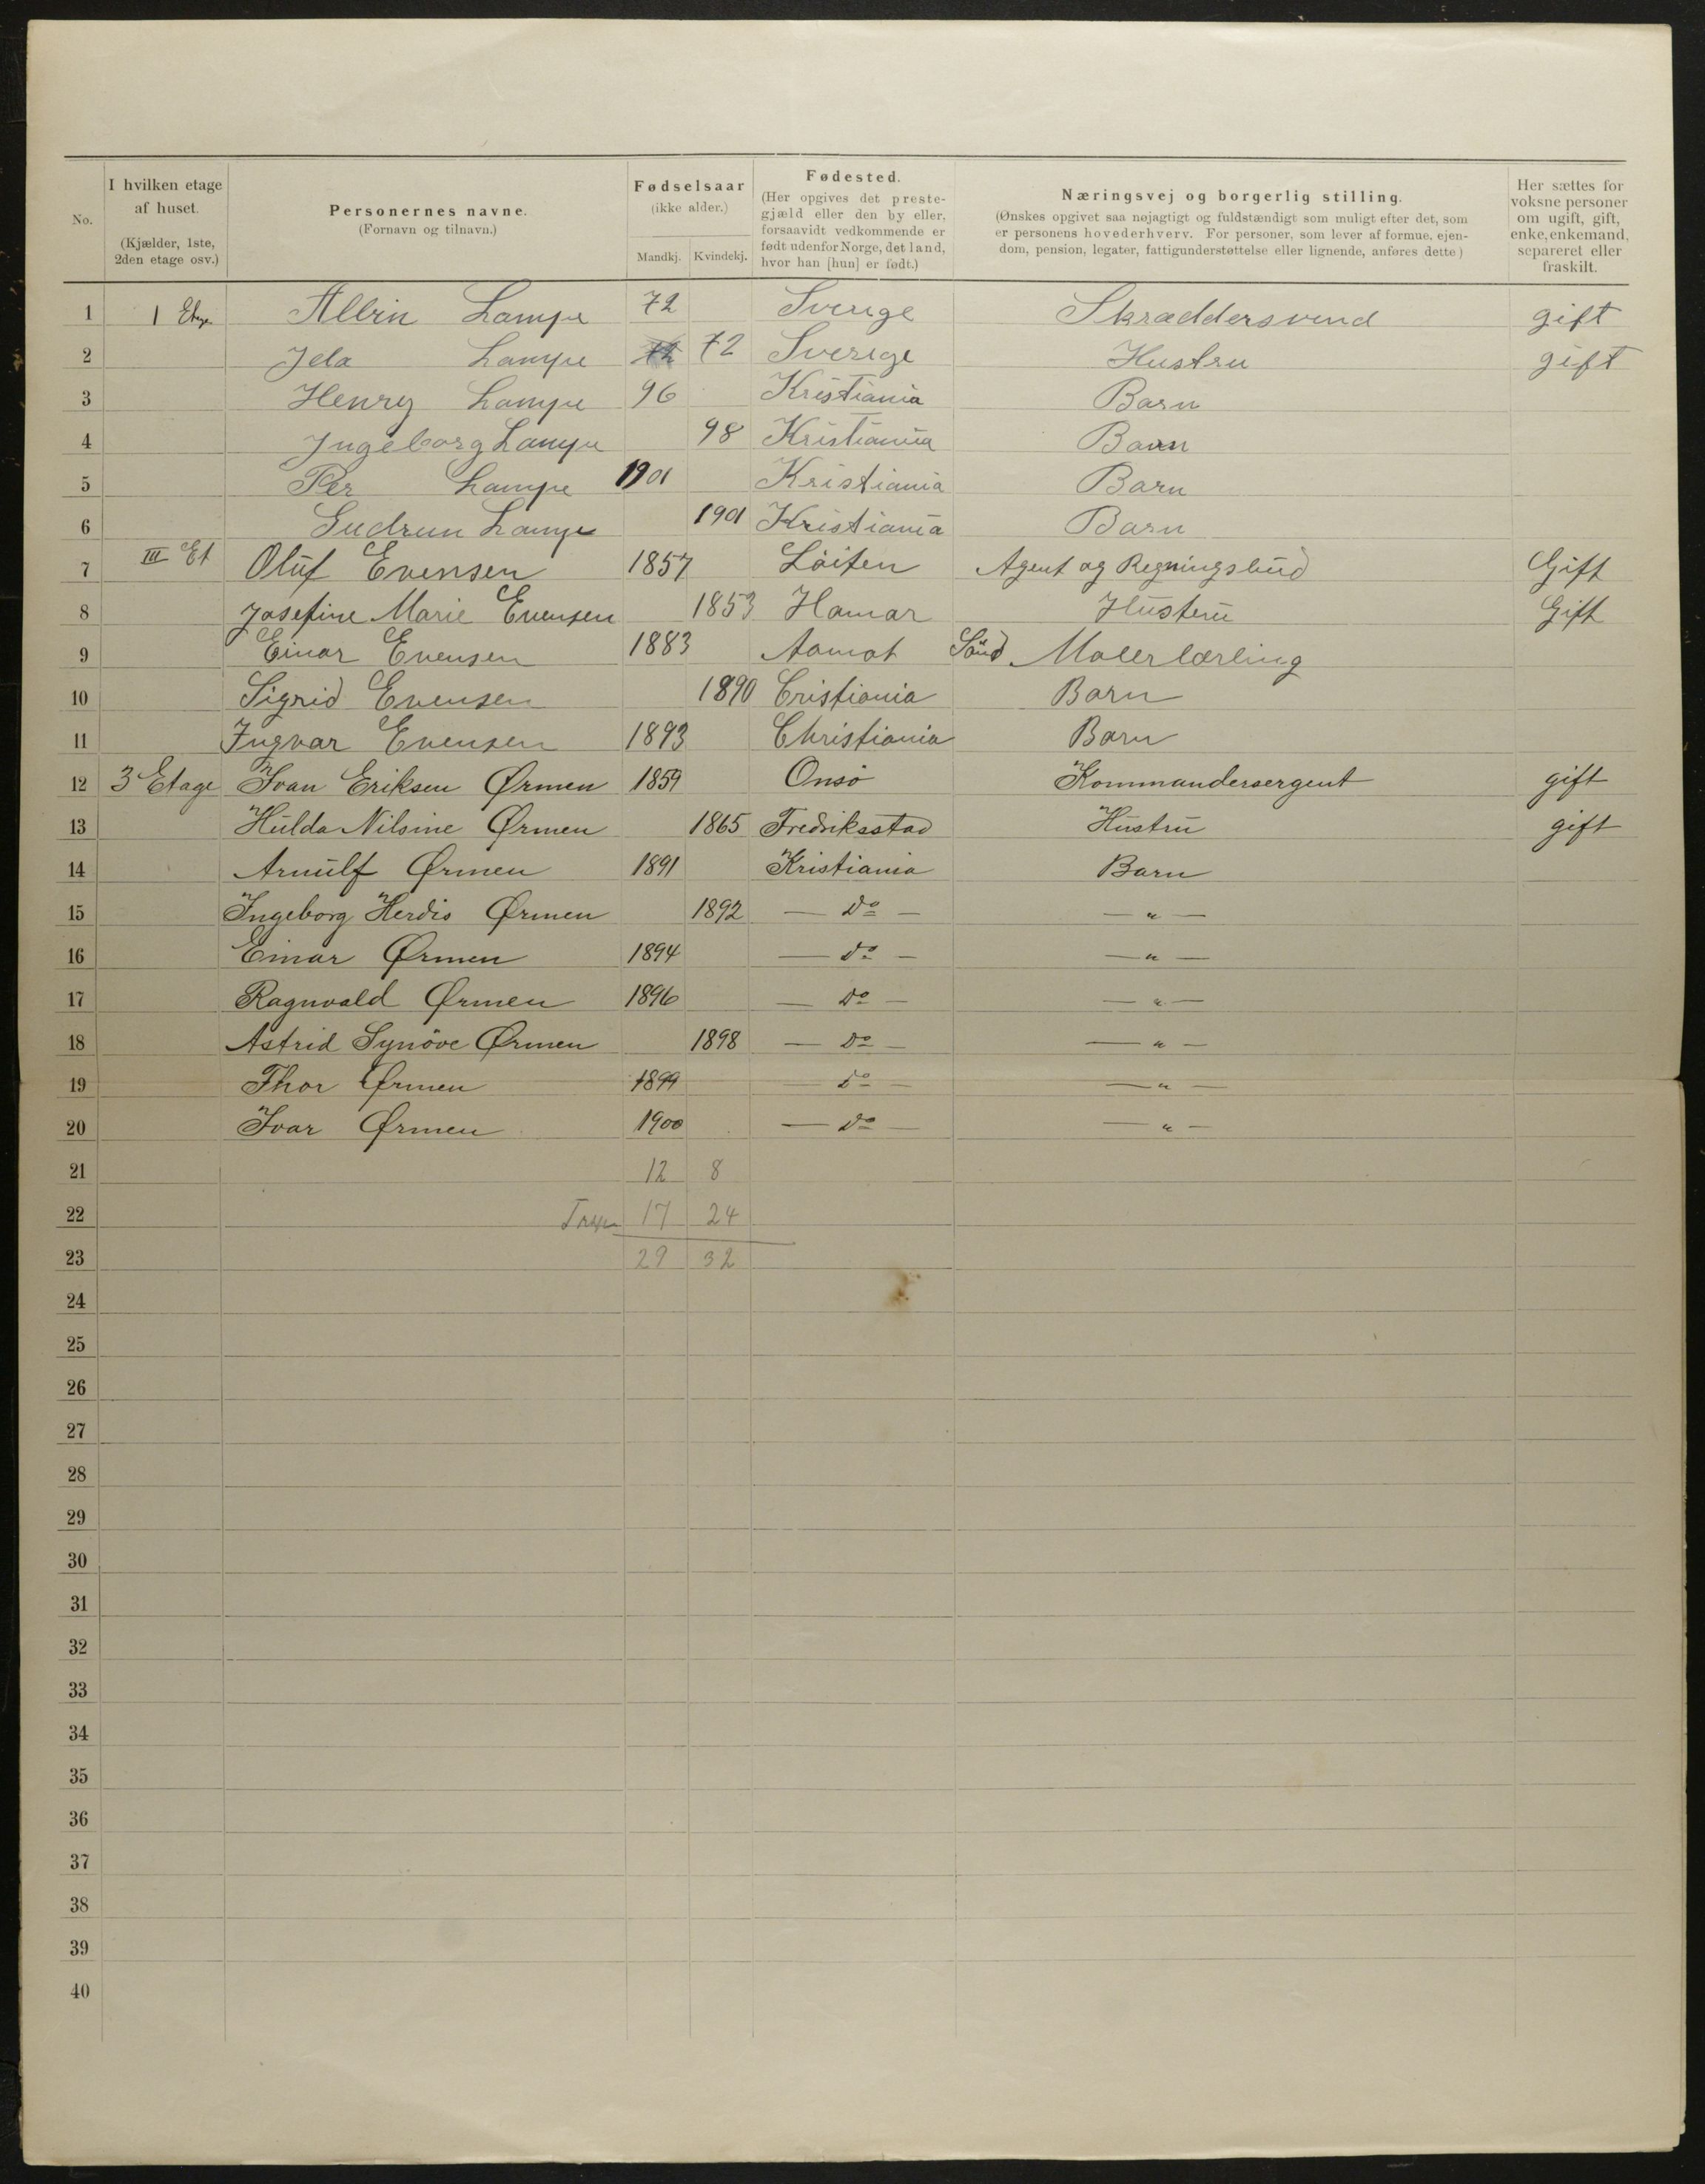 No.
I hvilken etage af huset.
(Kjælder, 1ste, 2den etage osv.)
Personernes navne.
(Fornavn og tilnavn.)
Fødselsaar
(ikke alder.)
Mandkj. Kvindekj.
Fødested.
(Her opgives det prestegjæld eller den by eller, forsaavidt vedkommende er født udenfor Norge, det land, hvor han [hun] er født.)
Næringsvej og borgerlig stilling.
(Ønskes opgivet saa nøjagtigt og fuldstændigt som muligt efter det, som er personens hovederhverv. For personer, som lever af formue, ejendom, pension, legater, fattigunderstøttelse eller lignende, anføres dette)
Her sættes for voksne personer om ugift, gift, enke, enkemand, separeret eller fraskilt.
1 1 Etage Albin Lampe 72 Sverige Skræddersvend gift
2 Jda Lampe 72 Sverige Hustru gift
3 Henry Lampe 96 Kristiania Barn
4 Jngeborg Lampe 98 Kristiania Barn
5 Per Lampe 1901 Kristiania Barn
6 Gudrun Lampe 1901 Kristiania Barn
7 III Et Oluf Evensen 1857 Löiten Agent og Regningsbud Gift
8 Josefine Marie Evensen 1853 Hamar Hustru Gift
9 Einar Evensen 1883 Aamot Sönd Malerlærling
10 Sigrid Evensen 1890 Cristiania Barn
11 Jngvar Evensen 1893 Christiania Barn
12 3 Etage Ivan Eriksen Ørmen 1859 Onsö Kommandersergent gift
13 Hulda Nilsine Ørmen 1865 Fredriksstad Hustru gift
14 Arnulf Ørmen 1891 Kristiania Barn
15 Ingeborg Herdis Ørmen 1892 — Do — — " —
16 Einar Ørmen 1894 — do — — " —
17 Ragnvald Ørmen 1896 — Do — — " —
18 Astrid Synöve Ørmen 1898 — Do — — " —
19 Thor Ørmen 1899 — Do — — " —
20 Ivar Ørmen 1900 — Do — — " —
21 12 8
22 17 24
23 29 32
24
25
26
27
28
29
30
31
32
33
34
35
36
37
38
39
40